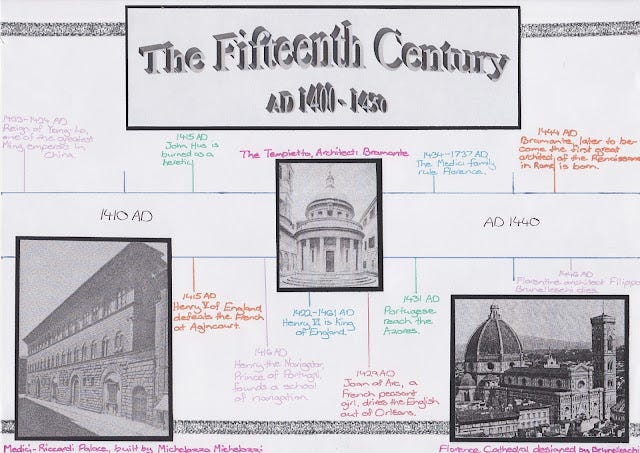 The Fifteenth Century
AD 1400 - 1450
1403-1424 AD
Reign of Yong-Lo,
one of the greatest
Ming emperors in
China.
1415 AD
John Hus is
burned as a
heretic.
The Tempietto, Architect: Bramante
1434-1737 AD
The Medici family
rule Florence.
1444 AD
Bramante, later to be-
come the first great
architect of the Renaissance
in Rome, is born.
1410 AD
AD 1440
1415 AD
Henry V of England
defeats the French
at Agincourt.
1416 AD
Henry the Navigator,
Prince of Portugal,
founds a school
of navigation.
1422-1461 AD
Henry VI is King
of England.
1429 AD
Joan of Arc, a
French peasant
girl, drives the English
out of Orléans.
1431 AD
Portuguese
reach the
Azores.
1446 AD
Florentine architect Filippo
Brunelleschi dies.
Medici-Riccardi Palace, built by Michelozzo Michelozzi
Florence Cathedral designed by Brunelleschi